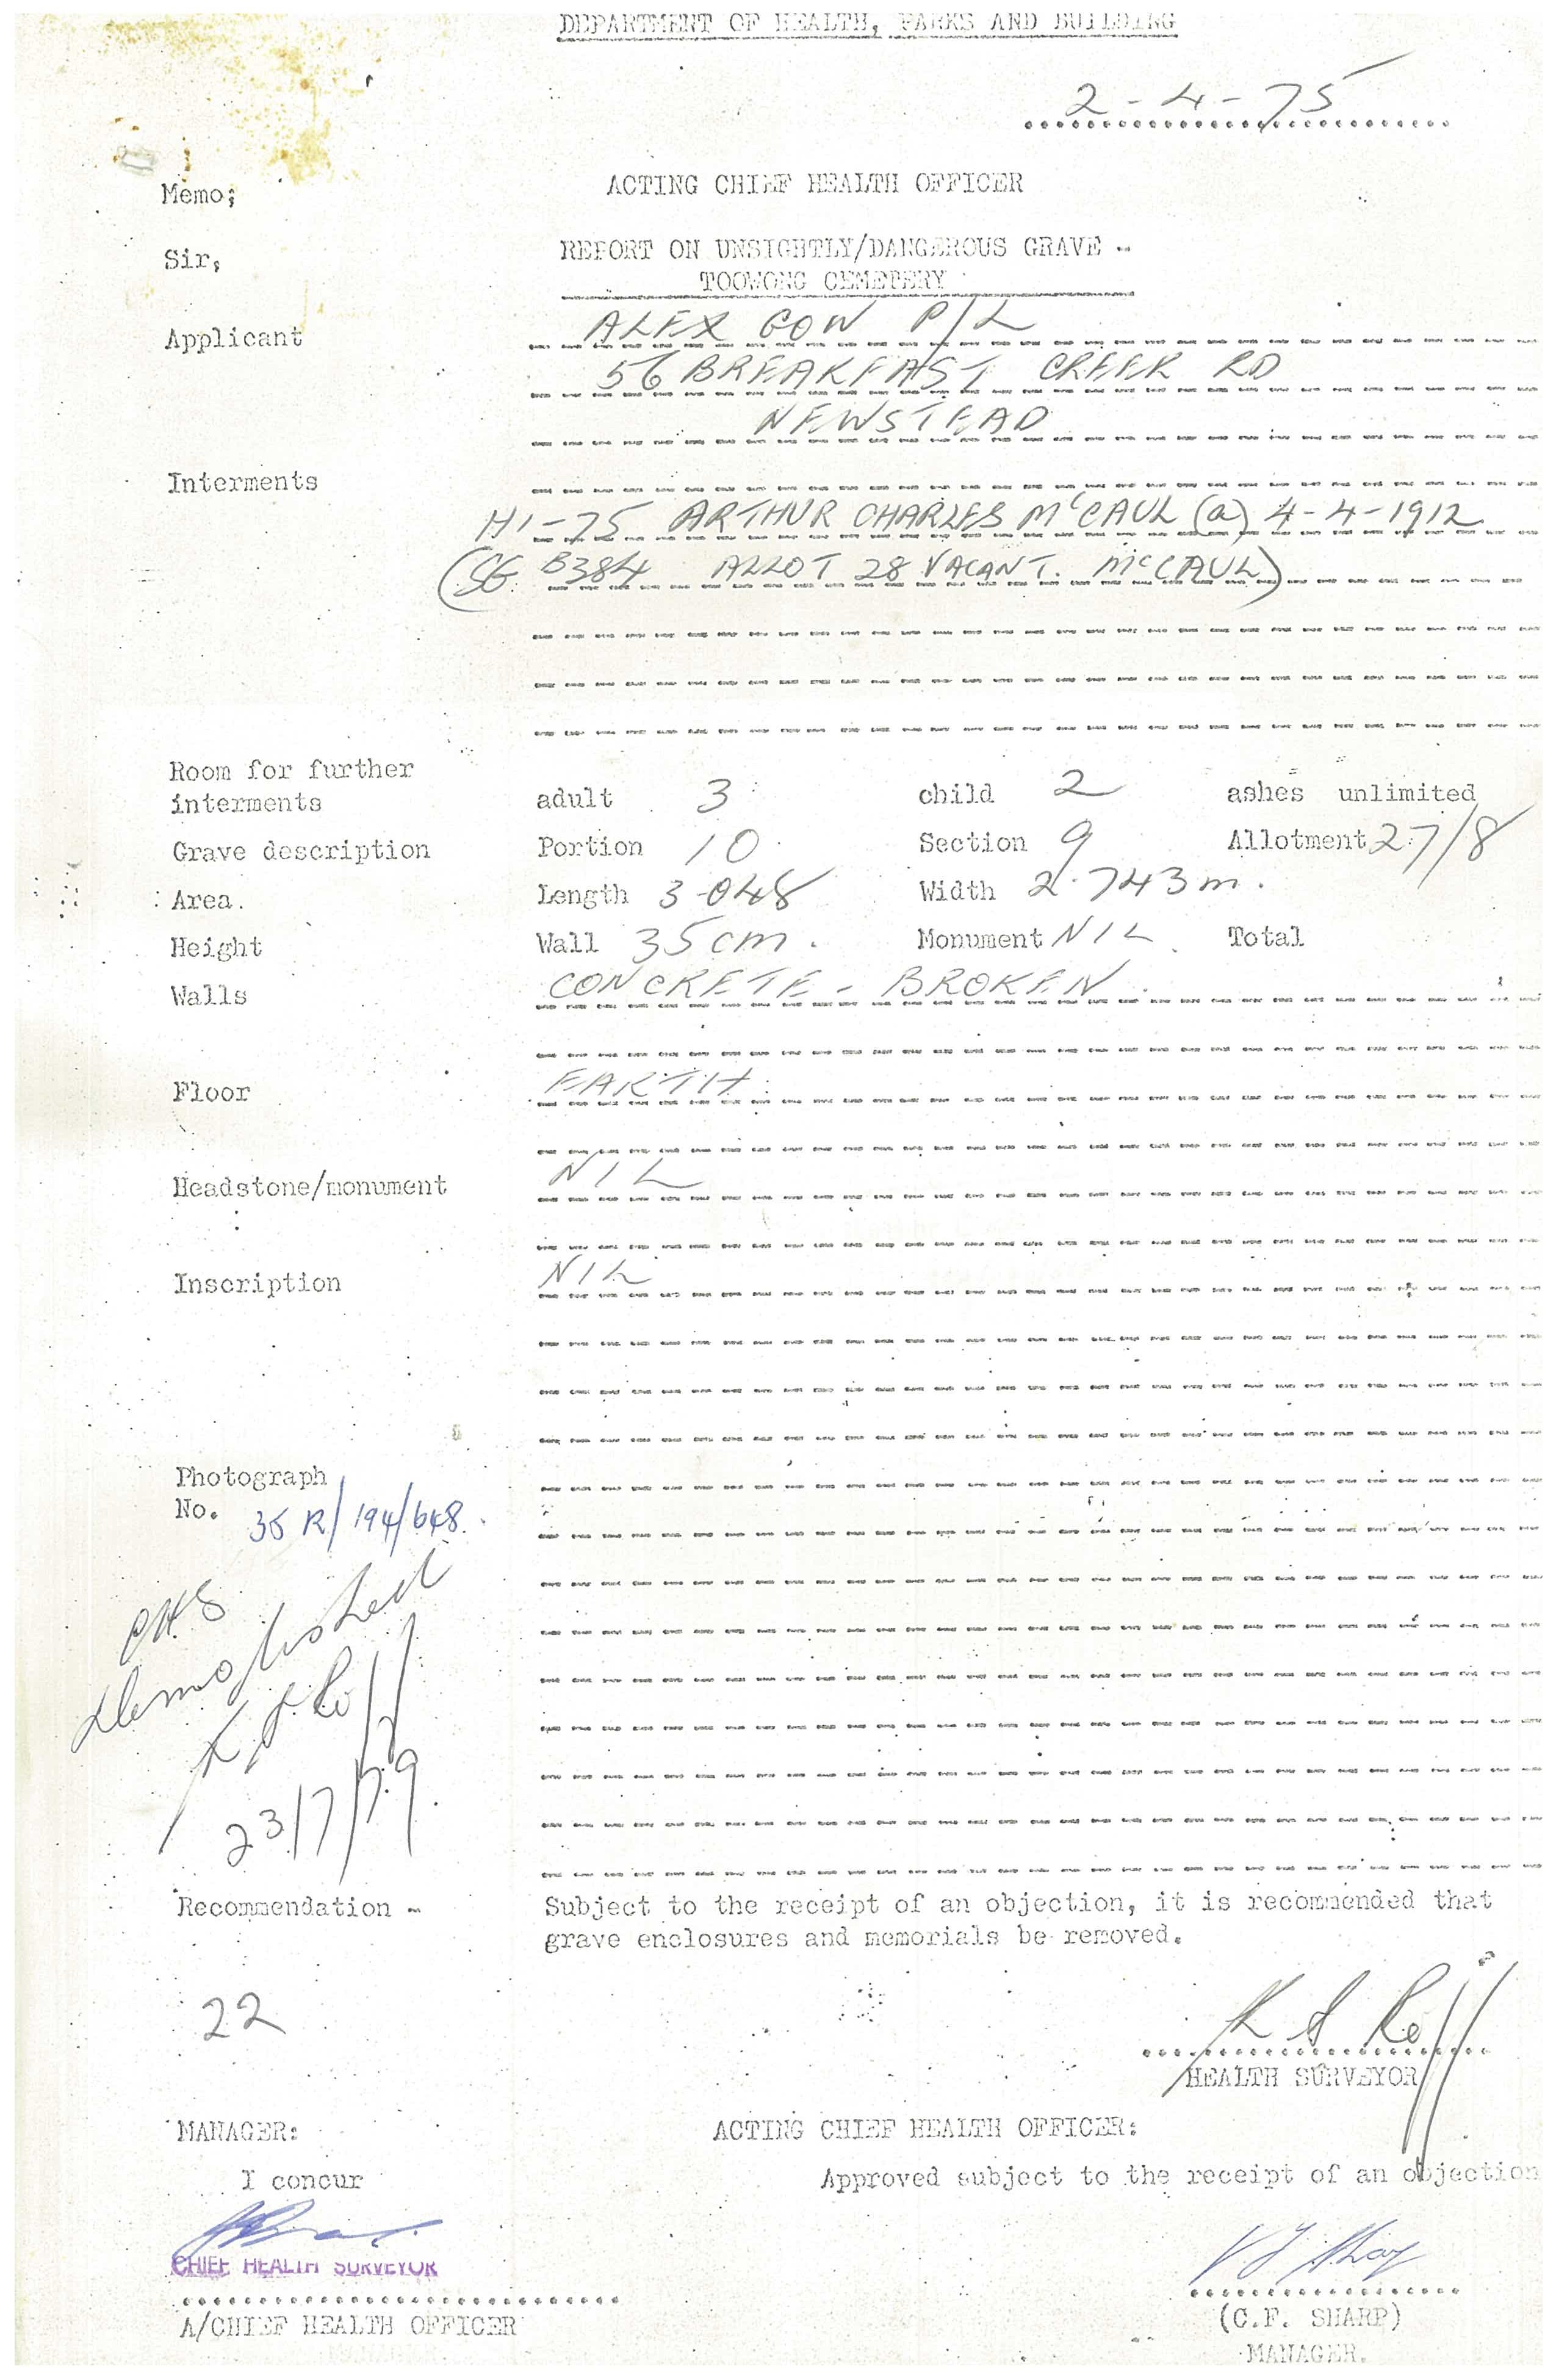 DEPARTMENT OF HEALTH, PARKS AND BUILDING
2-4-75
Memo; ACTING CHIEF HEALTH OFFICER
Sir, REPORT ON UNSIGHTLY/DANGEROUS GRAVE -
TOOWONG CEMETERY
Applicant ALEX GOW P/L
56 BREAKFAST CREEK RD
NEWSTEAD
Interments
H1-75 ARTHUR CHARLES McCAUL (a) 4-4-1912
(SG B384 ALLOT 28 VACANT. McCAUL)
Room for further
interments adult 3 child 2 ashes unlimited
Grave description Portion 10 Section 9 Allotment 27/8
Area. Length 3.048 Width 2.743m.
Height Wall 35cm. Monument NIL Total
Walls CONCRETE - BROKEN.
Floor EARTH
Headstone/monument NIL
Inscription NIL
Photograph
No. 35 R/194/648.
CHS
Demolished
K S Roff
23/7/79.
Recommendation - Subject to the receipt of an objection, it is recommended that
grave enclosures and memorials be removed.
22
K S Roff
HEALTH SURVEYOR
MANAGER: ACTING CHIEF HEALTH OFFICER:
I concur Approved subject to the receipt of an objection
CHIEF HEALTH SURVEYOR
A/CHIEF HEALTH OFFICER (C.F. SHARP)
MANAGER.